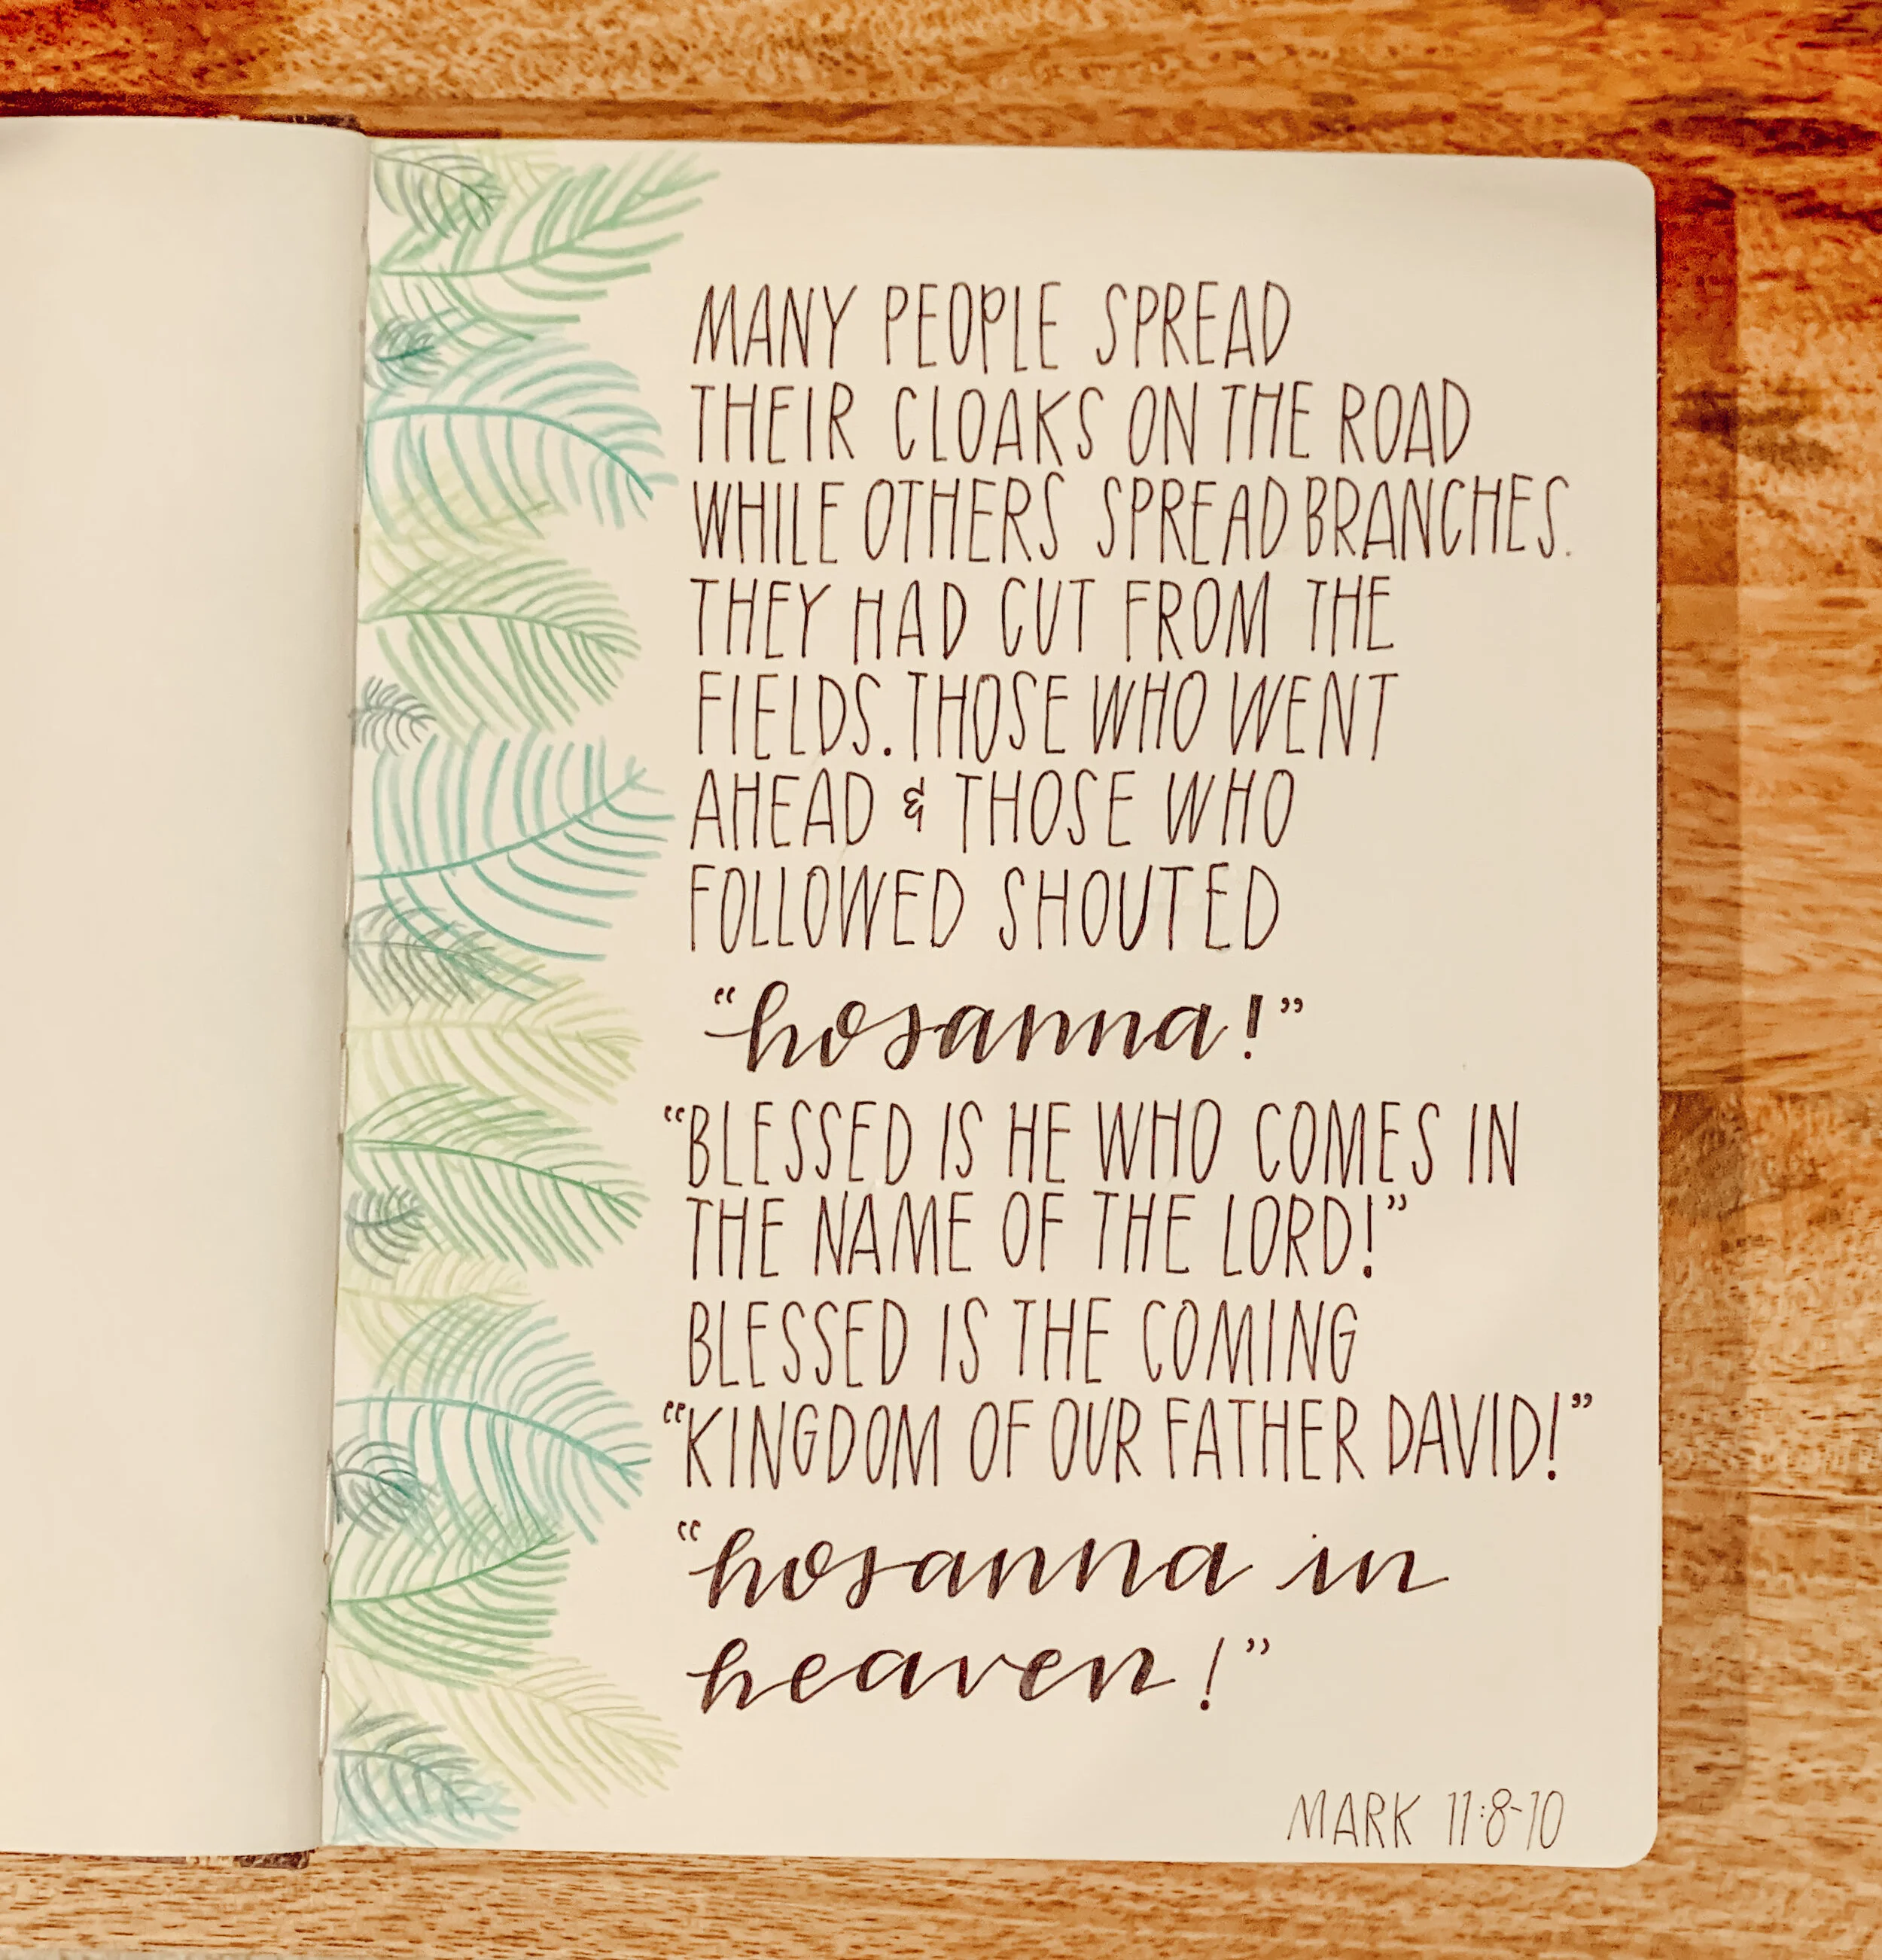 MANY PEOPLE SPREAD
THEIR CLOAKS ON THE ROAD
WHILE OTHERS SPREAD BRANCHES.
THEY HAD CUT FROM THE
FIELDS. THOSE WHO WENT
AHEAD & THOSE WHO
FOLLOWED SHOUTED
“hosanna!”
“BLESSED IS HE WHO COMES IN
THE NAME OF THE LORD!”
BLESSED IS THE COMING
“KINGDOM OF OUR FATHER DAVID!”
“hosanna in
heaven!”
MARK 11:8-10